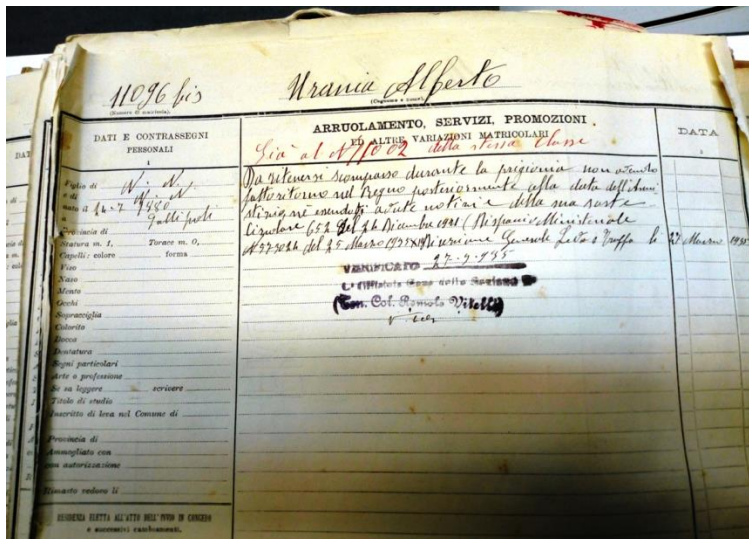 11096 bis Urania Alberto
(Numero di matricola). (Cognome e nome)
DATI E CONTRASSEGNI
PERSONALI
1
Figlio di N. N.
e di N. N.
nato il 14-7 1880
a Gallipoli
Provincia di
Statura m. 1, Torace m. 0,
Capelli: colore forma
Viso
Naso
Mento
Occhi
Sopracciglia
Colorito
Bocca
Dentatura
Segni particolari
Arte o professione
Se sa leggere scrivere
Titolo di studio
Inscritto di leva nel Comune di
Provincia di
Ammogliato con
con autorizzazione
Rimasto vedovo li
RESIDENZA ELETTA ALL'ATTO DELL'INVIO IN CONGEDO
e successivi cambiamenti.
ARRUOLAMENTO, SERVIZI, PROMOZIONI
ED ALTRE VARIAZIONI MATRICOLARI
Già al N 11002 della stessa classe
Da ritenersi scomparso durante la prigionia non avendo
fatto ritorno nel Regno posteriormente alla data dell'Armi
stizio, nè essendosi avute notizie della sua sorte
Circolare 652 del 26 Dicembre 1921 (Dispaccio Ministeriale
del 25 Marzo 1935 Direzione Generale Leva e Truppa li
VERIFICATO 27-9-935
(Ten. Col. Romolo Vitelli)
DATA
27 Marzo 1935